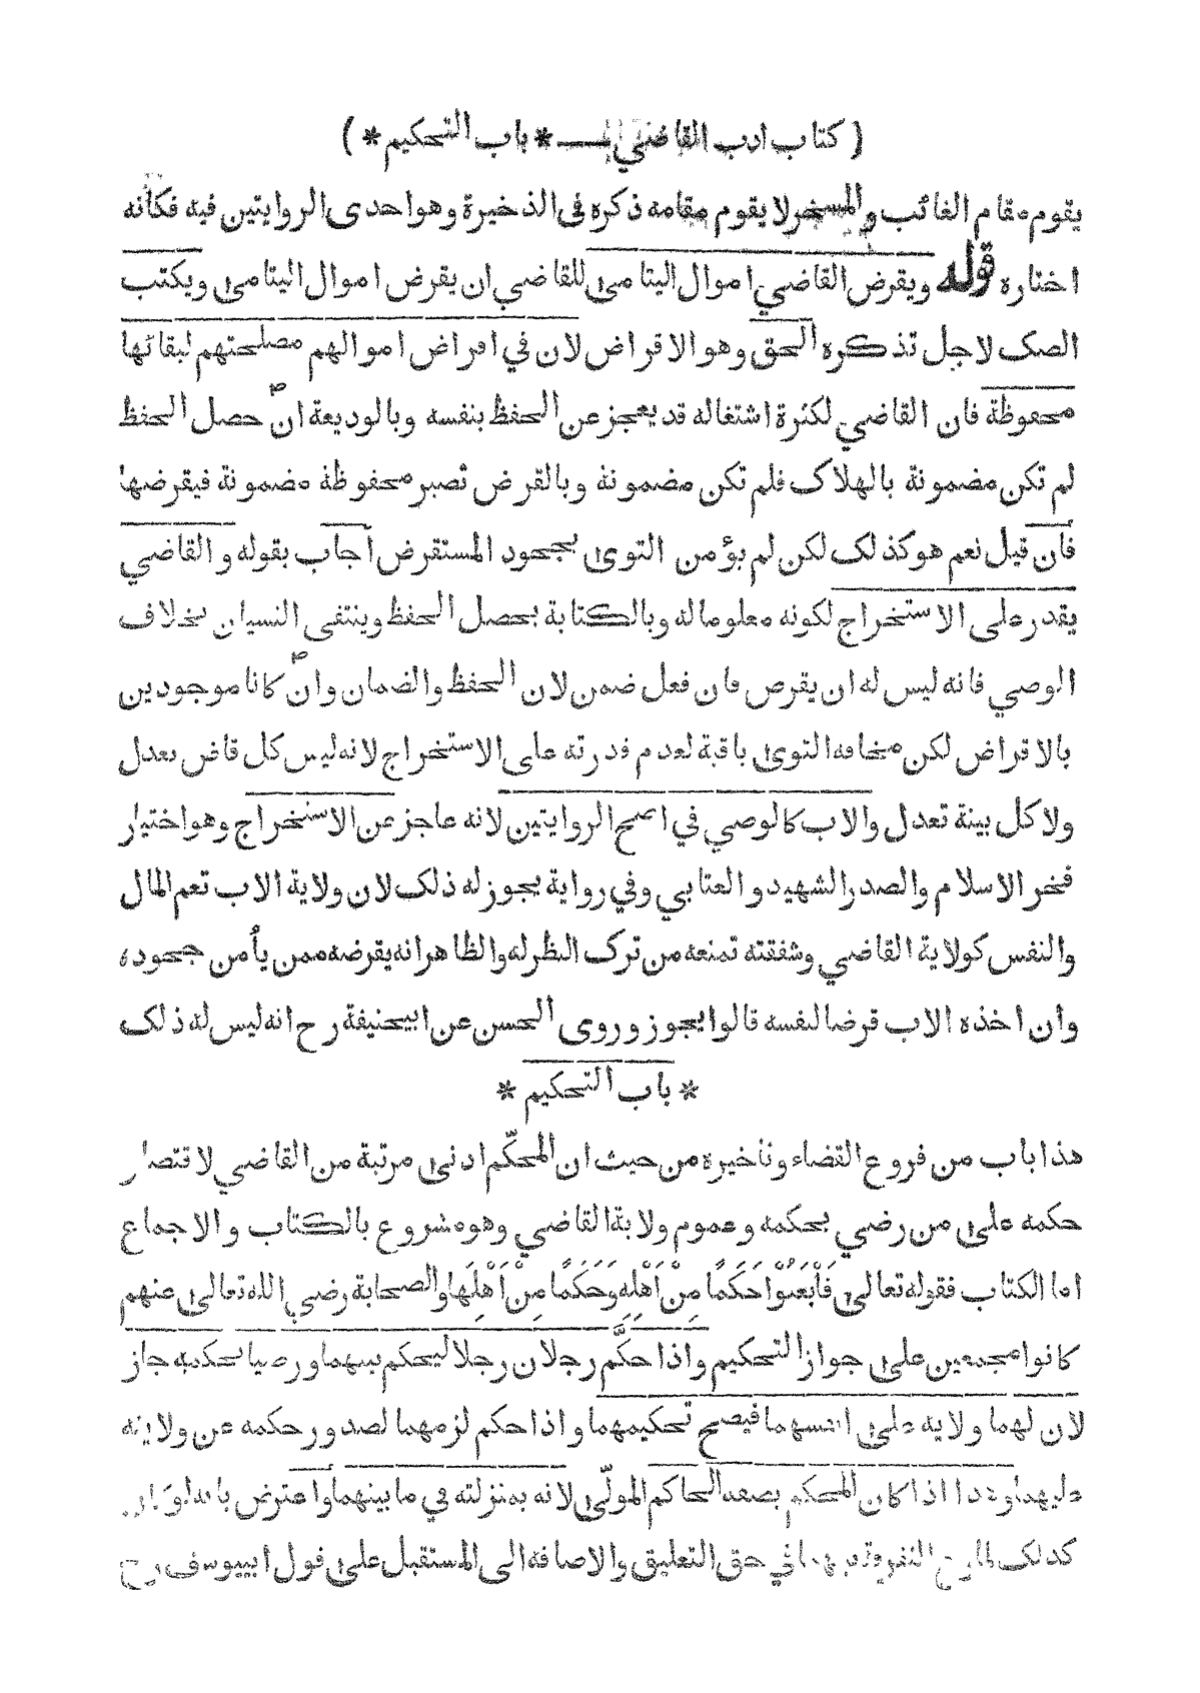 ( كتاب ادب القاضي * باب التحكيم * )
يقوم مقام الغائب والمسخر لا يقوم مقامه ذكره فى الذخيرة وهو احدى الروايتين فيه فكأنه
اختاره قوله ويقرض القاضي اموال اليتامى للقاضي ان يقرض اموال اليتامى ويكتب
الصك لاجل تذكرة الحق وهو الاقراض لان في اقراض اموالهم مصلحتهم لبقائها
محفوظة فان القاضي لكثرة اشتغاله قد يعجز عن الحفظ بنفسه وبالوديعة ان حصل الحفظ
لم تكن مضمونة بالهلاك فلم تكن مضمونة وبالقرض تصير محفوظة مضمونة فيقرضها
فأن قيل نعم هو كذلك لكن لم يؤمن التوى بجحود المستقرض أجاب بقوله والقاضي
يقدر على الاستخراج لكونه معلوما له وبالكتابة يحصل الحفظ وينتفى النسيان بخلاف
الوصي فانه ليس له ان يقرض فان فعل ضمن لان الحفظ والضمان وان كانا موجودين
بالاقراض لكن مخافة التوى باقية لعدم قدرته على الاستخراج لانه ليس كل قاض يعدل
ولا كل بينة تعدل والاب كالوصي في اصح الروايتين لانه عاجز عن الاستخراج وهو اختيار
فخر الاسلام والصدر الشهيد والعتابي وفي رواية يجوز له ذلك لان ولاية الاب تعم المال
والنفس كولاية القاضي وشفقته تمنعه من ترك النظر له والظاهر انه يقرضه ممن يأمن جحوده
وان اخذه الاب قرضا لنفسه قالوا يجوز وروى الحسن عن ابيحنيفة رح انه ليس له ذلك
* باب التحكيم *
هذا باب من فروع القضاء وتأخيره من حيث ان المحكّم ادنى مرتبة من القاضي لاقتصار
حكمه على من رضي بحكمه وعموم ولاية القاضي وهو مشروع بالكتاب والاجماع
اما الكتاب فقوله تعالى فَٱبْعَثُوْا حَكَمًا مِنْ اَهْلِهِ وَحَكَمًا مِنْ اَهْلِهَا والصحابة رضي الله تعالى عنهم
كانوا مجمعين على جواز التحكيم واذا حكَّم رجلان رجلا ليحكم بينهما ورضيا بحكمه جاز
لان لهما ولاية على انفسهما فيصح تحكيمهما واذا حكم لزمهما لصدور حكمه عن ولاية
عليهما وهذا اذا كان المحكم بصفة الحاكم المولّى لانه بمنزلته في ما بينهما واعترض بانه لو كان
كذلك التفرقة بينهما في حق التعليق والاضافة الى المستقبل على قول ابييوسف رح